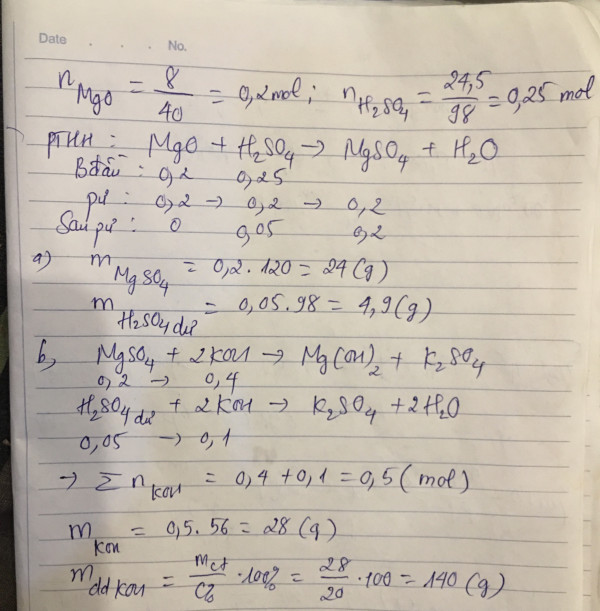 Date . . . No.
n MgO = 8/40 = 0,2 mol ; n H₂SO₄ = 24,5/98 = 0,25 mol
PTHH : MgO + H₂SO₄ → MgSO₄ + H₂O
Bđầu : 0,2 0,25
pư : 0,2 → 0,2 → 0,2
Sau pư : 0 0,05 0,2
a) m MgSO₄ = 0,2 . 120 = 24 (g)
m H₂SO₄ dư = 0,05 . 98 = 4,9 (g)
b, MgSO₄ + 2KOH → Mg(OH)₂ + K₂SO₄
0,2 → 0,4
H₂SO₄ dư + 2KOH → K₂SO₄ + 2H₂O
0,05 → 0,1
→ Σ n KOH = 0,4 + 0,1 = 0,5 (mol)
m KOH = 0,5 . 56 = 28 (g)
m dd KOH = mct/C% . 100% = 28/20 . 100 = 140 (g)